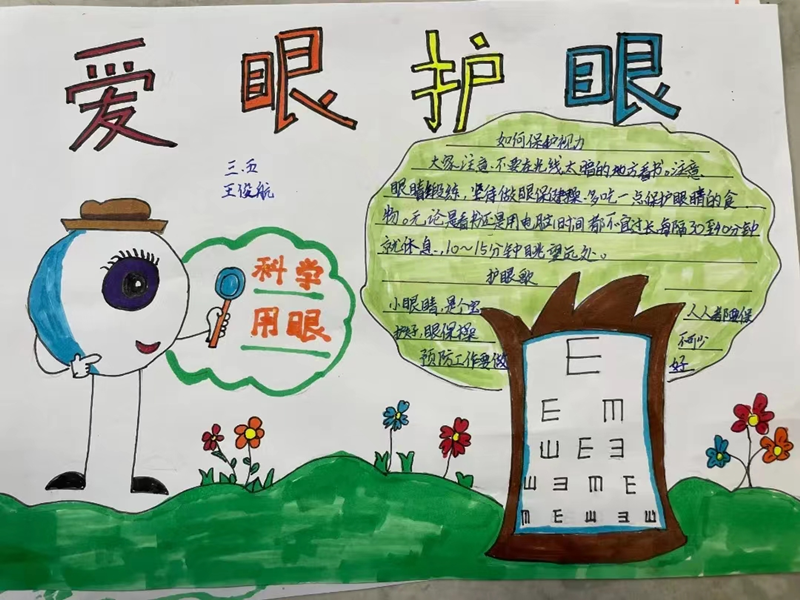 爱眼护眼
三.五
王俊航
科学
用眼
如何保护视力
大家注意,不要在光线太暗的地方看书。注意
眼睛锻炼,坚持做眼保健操。多吃一点保护眼睛的食
物。无论是看书还是用电脑时间都不宜过长,每隔30到40分钟
就休息,10~15分钟眺望远处。
护眼歌
小眼睛,是个宝 人人都要保
护好,眼保操 不可少
预防工作要做 好
E
E M
Ш E Ǝ
Ш Ǝ M E
M E Ш Ǝ Ш